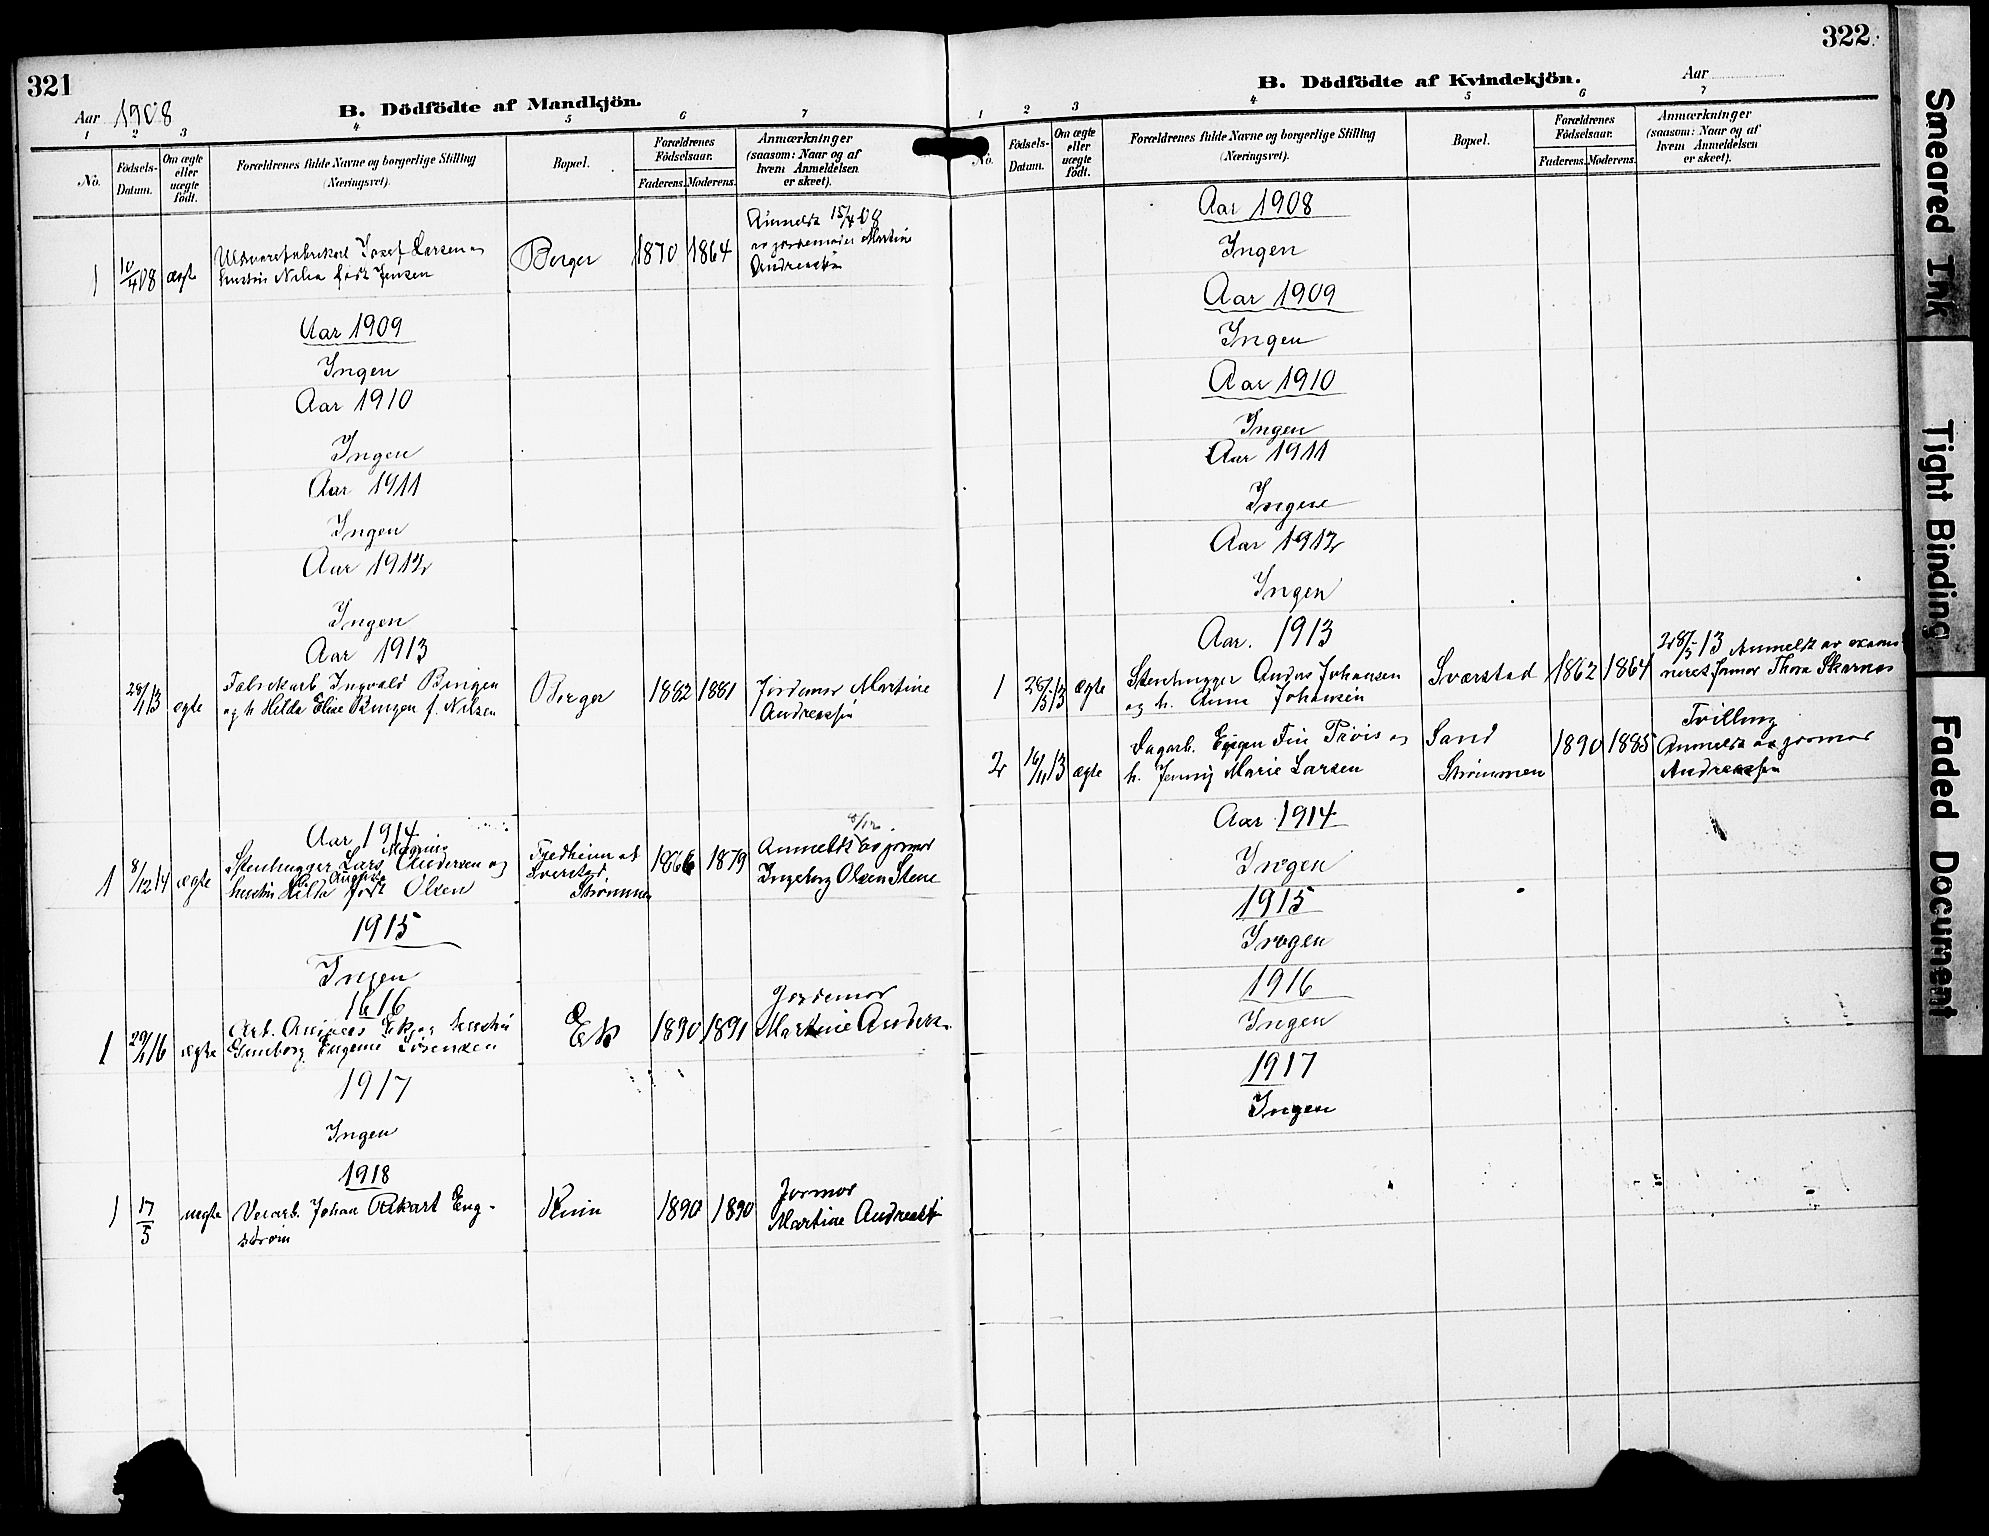 321
Aar 1908
B. Dödfödte af Mandkjön.
1 2 3 4 5 6 7
No.
Födsels-
Datum.
Om ægte
eller
uægte
födt.
Forældrenes fulde Navne og borgerlige Stilling
(Næringsvei).
Bopæl.
Forældrenes
Födselsaar.
Faderens. Moderens.
Anmærkninger
(saasom: Naar og af
hvem Anmeldelsen
er skeet).
1 10/4 08 ægte Josef Larsen og
hustru født Jensen
Berger 1870 1864
Anmeldt 15/4 08
av jordemoder Martine
Andreassen
Aar 1909
Ingen
Aar 1910
Ingen
Aar 1911
Ingen
Aar 1912
Ingen
Aar 1913
28/1 13 ægte Fabrikarb. Ingvald Bingen
og h. Hilda Elise Bingen f. Nilsen
Berger 1882 1881 Jordemor Martine
Andreassen
Aar 1914
1 8/12 14 ægte Stenhugger Lars Magnus Andersen og
hustru Hilda Augusta født Olsen
Fjedheim at
Sverstad,
Strømmen
1866 1879
Anmeldt 8/12 av jormor
Ingeborg Olsen Stene
1915
Ingen
1916
1 29/1 16 ægte Arb. Ek og hustru
Eugenie Sørensen
Ek 1890 1891
Jordemor
Martine Anders.
1917
Ingen
1918
1 17/5 uegte Verarb. Johan Rikart Eng-
strøm
Ruin 1890 1890
Jormor
Martine Andreass
322
B. Dödfödte af Kvindekjön.
Aar
1 2 3 4 5 6 7
No.
Födsels-
Datum.
Om ægte
eller
uægte
födt.
Forældrenes fulde Navne og borgerlige Stilling
(Næringsvei).
Bopæl.
Forældrenes
Födselsaar.
Faderens. Moderens.
Anmærkninger
(saasom: Naar og af
hvem Anmeldelsen
er skeet).
Aar 1908
Ingen
Aar 1909
Ingen
Aar 1910
Ingen
Aar 1911
Ingen
Aar 1912
Ingen
Aar. 1913
1 28/5 13 ægte Stenhugger Anders Johansen
og h. Anna Johansen
Sværstad 1862 1864
28/5 13 Anmeldt av exami
neret jormor Thora Skarnes
2 16/11 13 ægte Sagarb. og
h. Jenny Marie Larsen
Sand
Strømmen
1890 1885
Tvilling
Anmeldt av jormor
Andreassen
Aar 1914
Ingen
1915
Ingen
1916
Ingen
1917
Ingen
Smeared Ink
Tight Binding
Faded Document